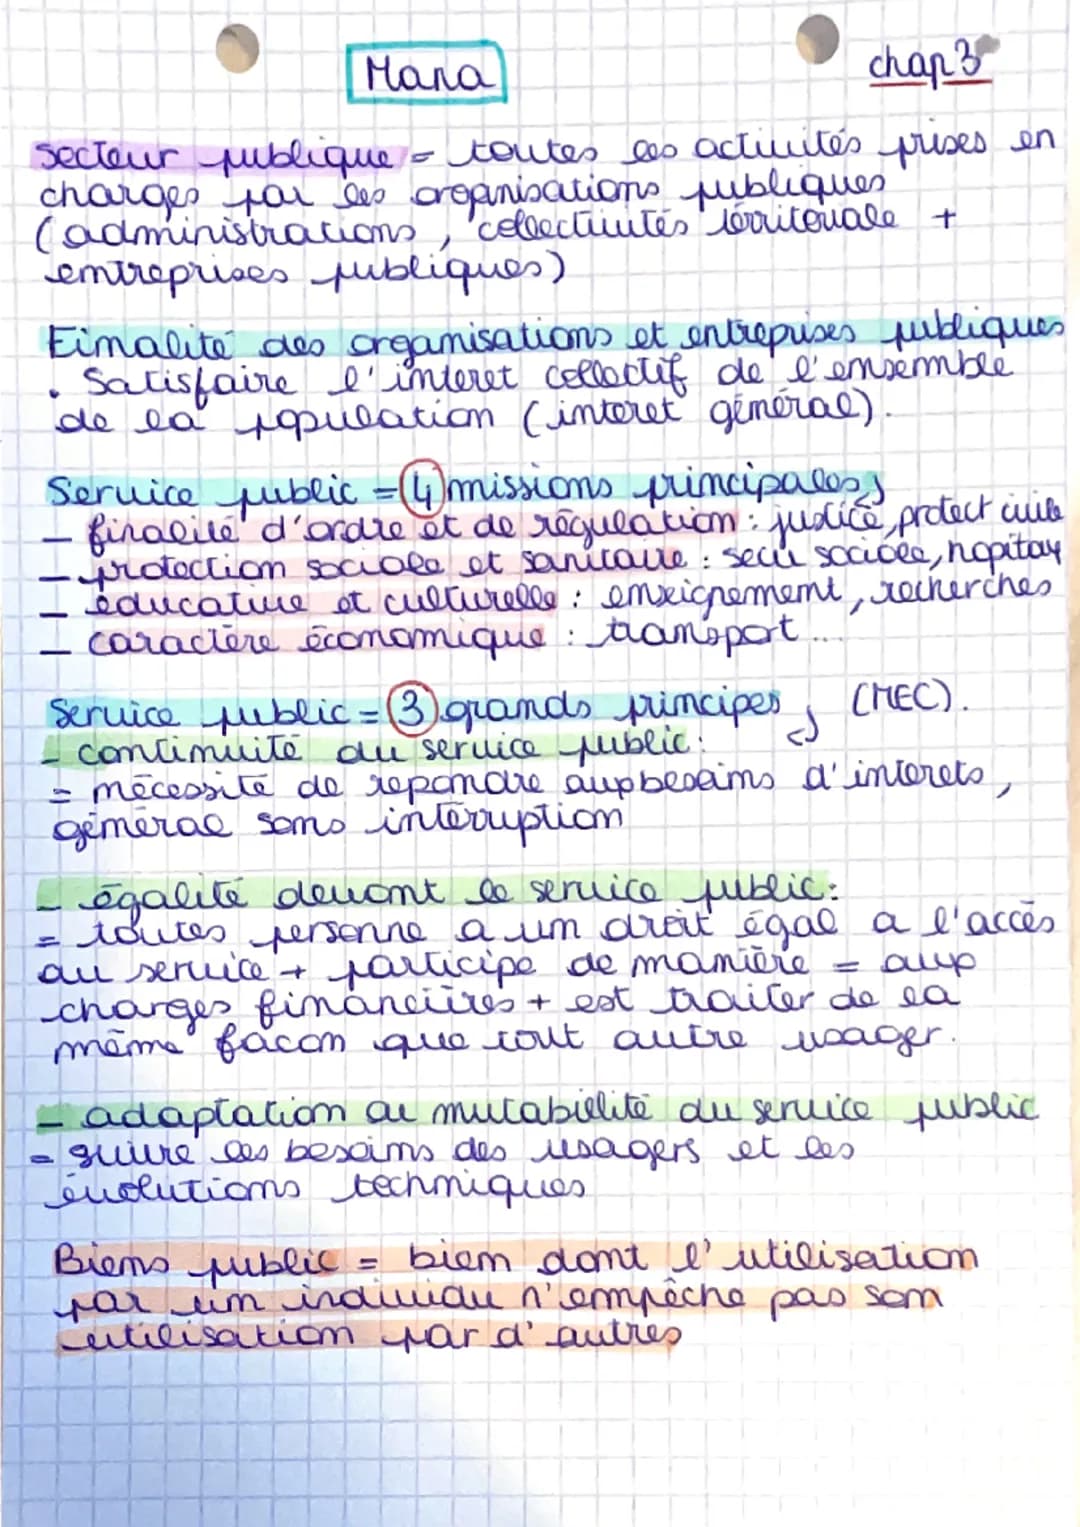 Mana
chap 3
secteur publique = toutes les activités prises en
charges par les organisations publiques
(administrations, collectivités térritoriale +
entreprises publiques)
Finalité des organisations et entreprises publiques
. Satisfaire l'interet collectif de l'ensemble
de la population (interet général).
Service public = 4 missions principales
- finalité d'ordre et de régulation : justice, protect civile
- protection sociale et sanitaire : secu sociale, hopitaux
- éducative et culturelle : enseignement, recherches
- caractère économique : transport ...
Service public = 3 grands principes (MEC).
- continuité du service public :
= nécessité de repondre aux besoins d'interets,
général sans intérruption
- égalité devant le service public :
= toutes personne a un droit égal a l'accès
au service + participe de manière = aux
charges financiières + est traiter de la
même facon que tout autre usager.
- adaptation ou mutabilité du service public
= suivre les besoins des usagers et les
évolutions techniques
Biens public = bien dont l'utilisation
par un individu n'empêche pas son
utilisation par d'autres